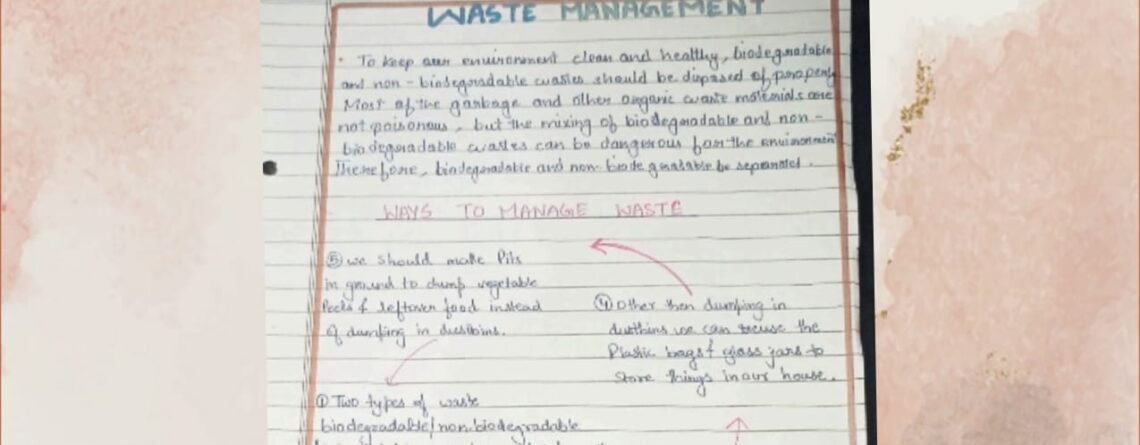 WASTE MANAGEMENT
• To keep our environment clean and healthy, biodegradable
and non-biodegradable wastes should be disposed of properly
Most of the garbage and other organic waste materials are
not poisonous, but the mixing of biodegradable and non-
biodegradable wastes can be dangerous for the environment
Therefore, biodegradable and non-biodegradable be separated.
WAYS TO MANAGE WASTE
⑤ we should make Pits
in ground to dump vegetable
Peels & leftover food instead
of dumping in dustbins.
④ Other then dumping in
dustbins we can reuse the
Plastic bags & glass jars to
store things in our house.
① Two types of waste
biodegradable/non-biodegradable